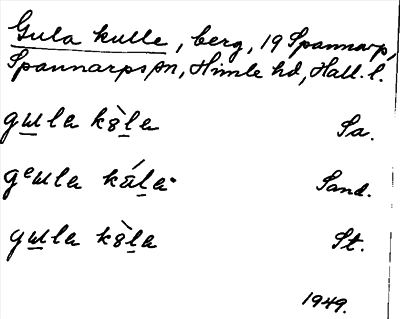 Gula kulle, berg, 19 Spannarp,
Spannarps sn, Himle hd, Hall. l.
gɯla kɞ̀la Sa.
gᵊɯla Sand.
gɯla kɞ̀la St.
1949.